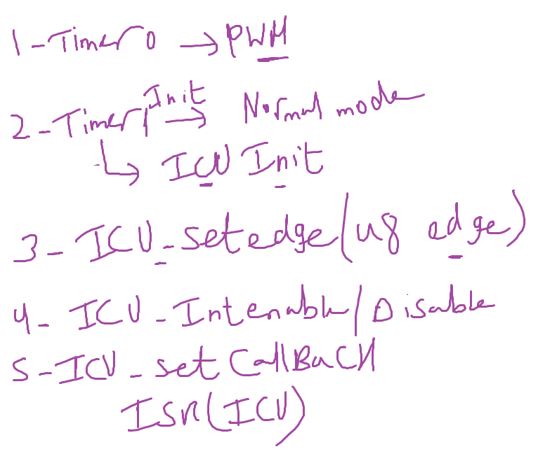 1-Timer0 → PWM
2-Timer1 Init → Normal mode
↳ ICU Init
3- ICU_setedge(u8 edge)
4- ICU-Intenable/Disable
5-ICU-setCallBacK
ISR(ICU)